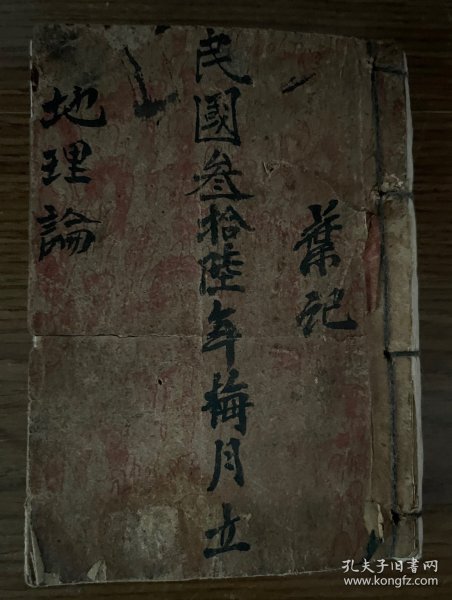 葉記
民國叁拾陸年梅月立
地理論
孔夫子旧书网
www.kongfz.com